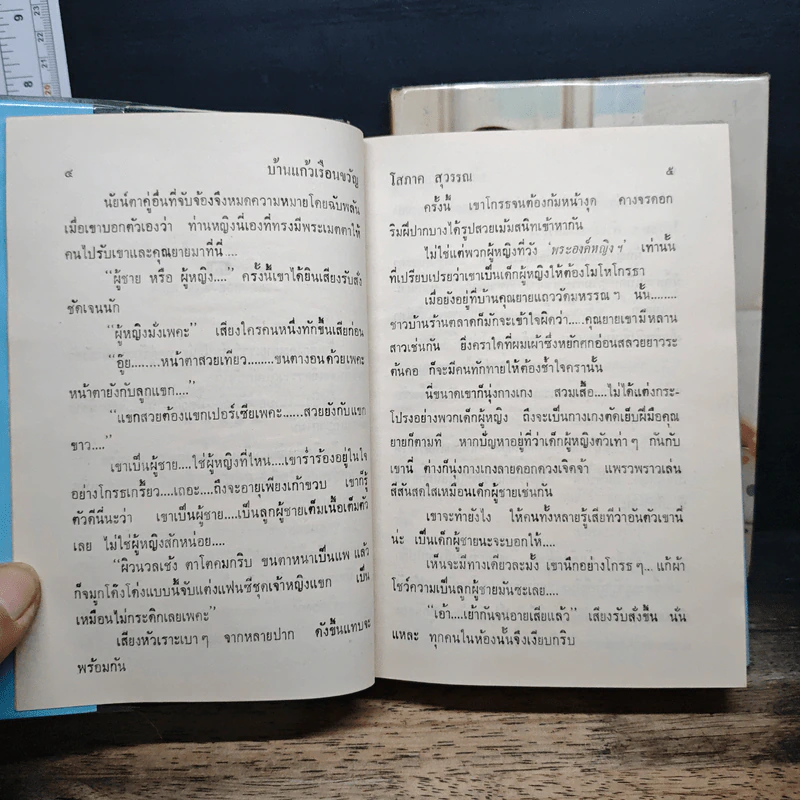 9
8
๔ บ้านแก้วเรือนขวัญ
นัยน์ตาคู่อื่นที่จับจ้องจึงหมดความหมายโดยฉับพลัน
เมื่อเขาบอกตัวเองว่า ท่านหญิงนี่เองที่ทรงมีพระเมตตาให้
คนไปรับเขาและคุณยายมาที่นี่ ....
“ผู้ชาย หรือ ผู้หญิง....” ครั้งนี้เขาได้ยินเสียงรับสั่ง
ชัดเจนนัก
“ผู้หญิงมั่งเพคะ” เสียงใครคนหนึ่งทักขึ้นเสียก่อน
“อุ๊ย.....หน้าตาสวยเทียว........ขนตางอนด้วยเพคะ
หน้าตายังกับลูกแขก....”
“แขกสวยต้องแขกเปอร์เซียเพคะ......สวยยังกับแขก
ขาว....”
เขาเป็นผู้ชาย....ใช่ผู้หญิงที่ไหน....เขาร่ำร้องอยู่ในใจ
อย่างโกรธเกรี้ยว....เถอะ....ถึงจะอายุเพียงเก้าขวบ เขาก็รู้
ตัวดีนี่นะว่า เขาเป็นผู้ชาย....เป็นลูกผู้ชายเต็มเนื้อเต็มตัว
เลย ไม่ใช่ผู้หญิงสักหน่อย....
“ผิวนวลเช้ง ตาโตคมกริบ ขนตาหนาเป็นแพ แล้ว
ก็จมูกโด่งโด่งแบบนี้จับแต่งแฟนซีชุดเจ้าหญิงแขก เป็น
เหมือนไม่กระดิกเลยเพคะ”
เสียงหัวเราะเบา ๆ จากหลายปาก ดังขึ้นแทบจะ
พร้อมกัน
โสภาค สุวรรณ ๕
ครั้งนี้ เขาโกรธจนต้องก้มหน้างุด คางจรดอก
ริมฝีปากบางได้รูปสวยเม้มสนิทเข้าหากัน
ไม่ใช่แต่พวกผู้หญิงที่วัง ‘พระองค์หญิง ฯ’ เท่านั้น
ที่เปรียบเปรยว่าเขาเป็นเด็กผู้หญิงให้ต้องโมโหโกรธา
เมื่อยังอยู่ที่บ้านคุณยายแถววัดมหรรณ ๆ นั้น........
ชาวบ้านร้านตลาดก็มักจะเข้าใจผิดว่า.....คุณยายเขามีหลาน
สาวเช่นกัน ยิ่งคราใดที่ผมเผ้าซึ่งหยักศกอ่อนสลวยยาวระ
ต้นคอ ก็จะมีคนทักทายให้ต้องช้ำใจครานั้น
นี่ขนาดเขาก็นุ่งกางเกง สวมเสื้อ....ไม่ได้แต่งกระ-
โปรงอย่างพวกเด็กผู้หญิง ถึงจะเป็นกางเกงตัดเย็บฝีมือคุณ
ยายก็ตามที หากปัญหาอยู่ที่ว่าเด็กผู้หญิงตัวเท่า ๆ กันกับ
เขานี่ ต่างก็นุ่งกางเกงลายดอกดวงเจิดจ้า แพรวพราวเล่น
สีสันสดใสเหมือนเด็กผู้ชายเช่นกัน
เขาจะทำยังไง ให้คนทั้งหลายรู้เสียทีว่าอันตัวเขานี่
น่ะ เป็นเด็กผู้ชายนะจะบอกให้....
เห็นจะมีทางเดียวละมั้ง เขานึกอย่างโกรธ ๆ... แก้ผ้า
โชว์ความเป็นลูกผู้ชายมันซะเลย....
“เอ้า....เย้ากันจนอายเสียแล้ว” เสียงรับสั่งขึ้น นั่น
แหละ ทุกคนในห้องนั้นจึงเงียบกริบ